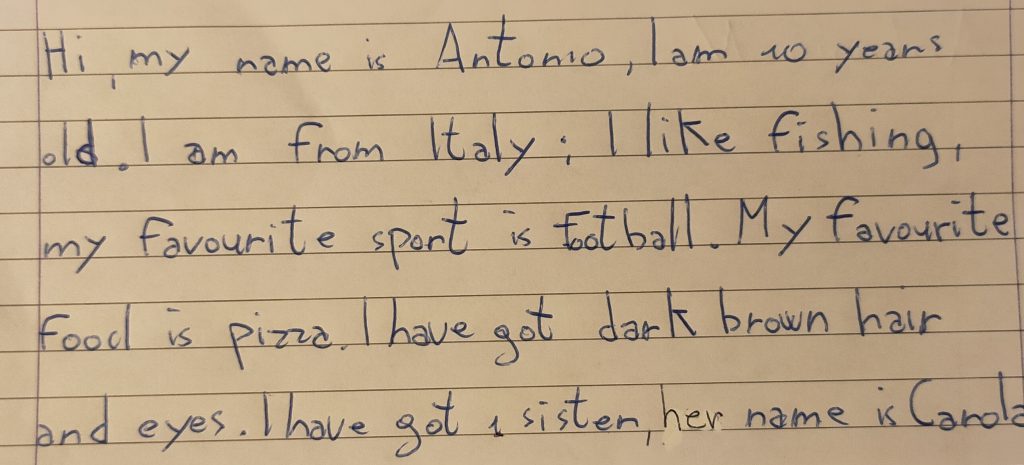 Hi, my name is Antonio, I am 10 years
old. I am from Italy; I like fishing,
my favourite sport is football. My favourite
food is pizza. I have got dark brown hair
and eyes. I have got 1 sister, her name is Carola